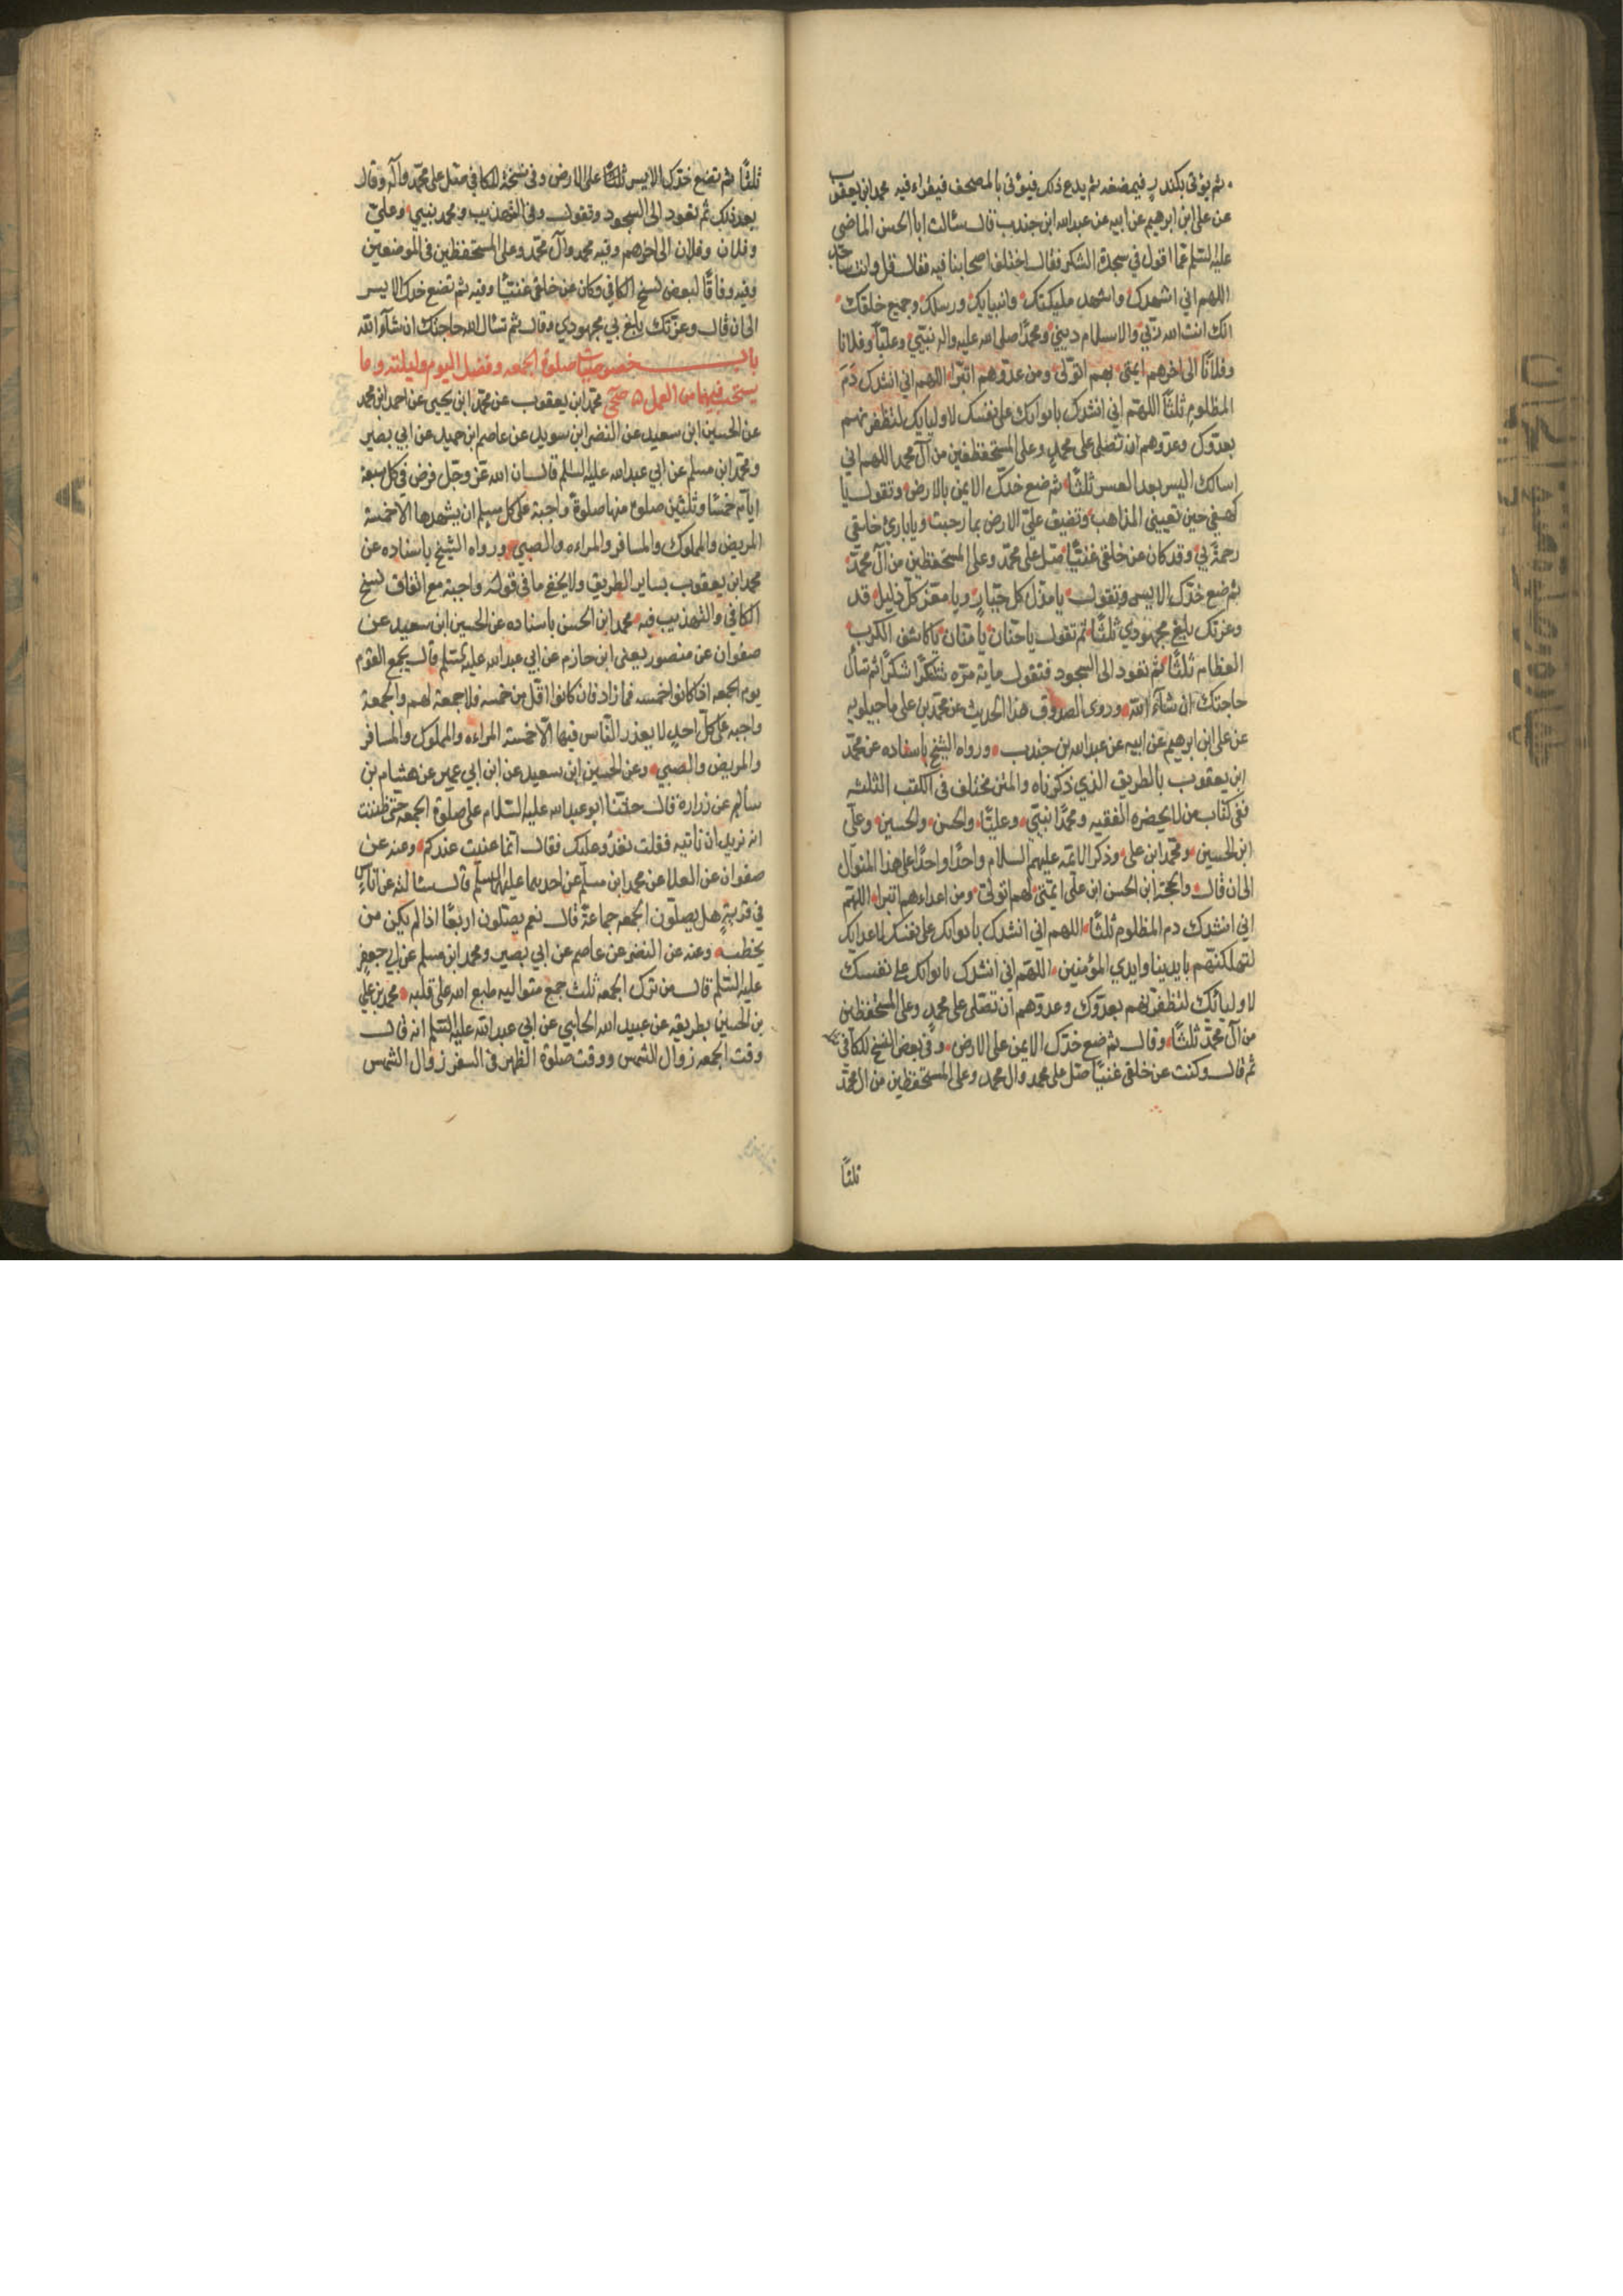 ثم يؤتى بكندر فيمضغه ثم يدع ذلك فيؤتى بالمصحف فيقراء فيه محمد ابن يعقوب
عن علي ابن ابرهيم عن ابيه عن عبدالله ابن جندب قال سئالت ابا الحسن الماضي
عليه السلم عما اقول في سجدة الشكر فقال اختلف اصحابنا فيه فقال قل وانت ساجد
اللهم اني اشهدك واشهد مليكتك وانبيايك ورسلك وجميع خلقك
انك انت الله ربي والاسلام ديني ومحمدًا صلى الله عليه واله نبيي وعليًا وفلانا
وفلانًا الى اخرهم ايمتي بهم اتولى ومن عدوهم اتبرا اللهم اني انشدك دم
المظلوم ثلثًا اللهم اني انشدك بايوايك على نفسك لاوليايك لتظفرنهم
بعدوك وعدوهم ان تصلى على محمد وعلى المستحفظين من آل محمد اللهم اني
اسالك اليسر بعد العسر ثلثًا ثم ضع خدك الايمن بالارض وتقول يا
كهفي حين تعييني المذاهب وتضيق علي الارض بما رحبت ويا باري خلقي
رحمةً بي وقد كان عن خلقي غنيًا صل على محمد وعلى المستحفظين من آل محمد
ثم ضع خدك الايسر وتقول يا مذل كل جبار ويا معز كل ذليل قد
وعزتك بلغ مجهودي ثلثًا ثم تقول يا حنان يا منان يا كاشف الكرب
العظام ثلثًا ثم تعود الى السجود فتقول ماية مرّه شكرًا شكرًا ثم تسأل
حاجتك ان شآء الله وروى الصدوق هذا الحديث عن محمد بن علي ماجيلويه
عن علي ابن ابرهيم عن ابيه عن عبدالله بن جندب ورواه الشيخ باسناده عن محمد
ابن يعقوب بالطريق الذي ذكرناه والمتن مختلف في الكتب الثلثه
ففي كتاب من لا يحضره الفقيه ومحمدًا نبيي وعليًا والحسن والحسين وعلى
ابن الحسين ومحمد ابن علي وذكر الائمه عليهم السلام واحدًا واحدًا على هذا المنوال
الى ان قال والحجة ابن الحسن ابن علي ايمتي لهم اتولى ومن اعداءهم اتبرا اللهم
اني انشدك دم المظلوم ثلثًا اللهم اني انشدك بايوايك على نفسك لاعدايك
لتهلكنهم بايدينا وايدي المؤمنين اللهم اني انشدك بايوايك على نفسك
لاوليائك لتظفرنهم بعدوك وعدوهم ان تصلى على محمد وعلى المستحفظين
من آل محمد ثلثًا وقال ثم ضع خدك الايمن على الارض وفي بعض النسخ للكافي
ثم قال وكنت عن خلقي غنيًا صل على محمد وال محمد وعلى المستحفظين من ال محمد
ثلثًا
ثلثًا ثم تضع خدك الايسر ثلثًا على الارض وفي نسخة للكافي صل على محمد وآله وقال
بعد ذلك ثم تعود الى السجود وتقول وفي التهذيب ومحمد نبيي وعلي
وفلان وفلان الى اخرهم وفيه محمد وآل محمد وعلى المستحفظين في الموضعين
وفيه وفاقًا لبعض نسخ الكافي وكان عن خلقي غنيًا وفيه ثم تضع خدك الايسر
الى ان قال وعزتك بلغ بي مجهودي وقال ثم تسأل الله حاجتك ان شآء الله
باب خصوصيات صلوة الجمعه وفضل اليوم وليلته وما
يستحب فيهما من العمل صحي محمد ابن يعقوب عن محمد ابن يحيى عن احمد ابن محمد
عن الحسين ابن سعيد عن النضر ابن سويد عن عاصم ابن حميد عن ابي بصير
ومحمد ابن مسلم عن ابي عبدالله عليه السلم قال ان الله عز وجل فرض في كل سبعة
ايام خمسًا وثلثين صلوة منها صلوة واجبة على كل مسلم ان يشهدها الا خمسة
المريض والمملوك والمسافر والمراءه والصبي ورواه الشيخ باسناده عن
محمد ابن يعقوب بساير الطريق ولا يخفى ما في قوله واجبة مع اتفاق نسخ
الكافي والتهذيب فيه محمد ابن الحسن باسناده عن الحسين ابن سعيد عن
صفوان عن منصور يعني ابن حازم عن ابي عبدالله عليه السلم قال يجمع القوم
يوم الجمعه اذا كانوا خمسه فما زاد فان كانوا اقل من خمسه فلا جمعة لهم والجمعة
واجبه على كل احدٍ لا يعذر الناس فيها الا خمسة المراءه والمملوك والمسافر
والمريض والصبي وعن الحسين ابن سعيد عن ابن ابي عمير عن هشام بن
سالم عن زرارة قال حثنا ابو عبدالله عليه السلام على صلوة الجمعه حتى ظننت
انه نريد ان ناتيه فقلت نغدو عليك فقال انما عنيت عندكم وعنه عن
صفوان عن العلا عن محمد ابن مسلم عن احدهما عليهما السلم قال سئالته عن اناس
في قرية هل يصلون الجمعه جماعةً قال نعم يصلون اربعًا اذا لم يكن من
يخطب وعنه عن النضر عن عاصم عن ابي بصير ومحمد ابن مسلم عن ابي جعفر
عليه السلم قال من ترك الجمعه ثلث جمع متواليه طبع الله على قلبه محمد بن علي
بن الحسين بطريقه عن عبيد الله الحلبي عن ابي عبدالله عليه السلم انه قال
وقت الجمعه زوال الشمس ووقت صلوة الظهر في السفر زوال الشمس